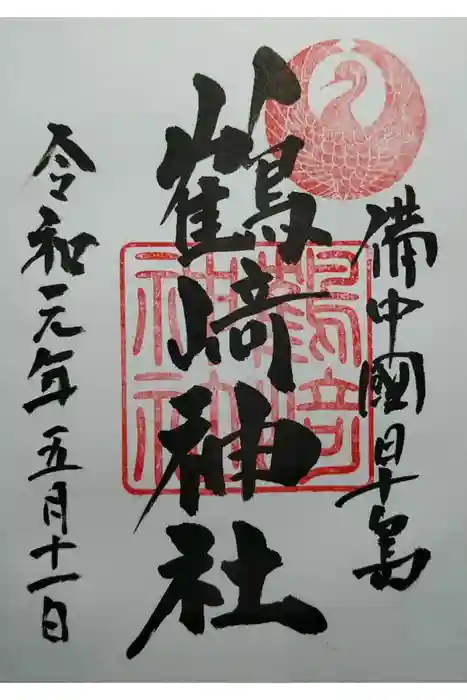 備中國日干島
鶴﨑神社
鶴﨑神社
令和元年五月十一日